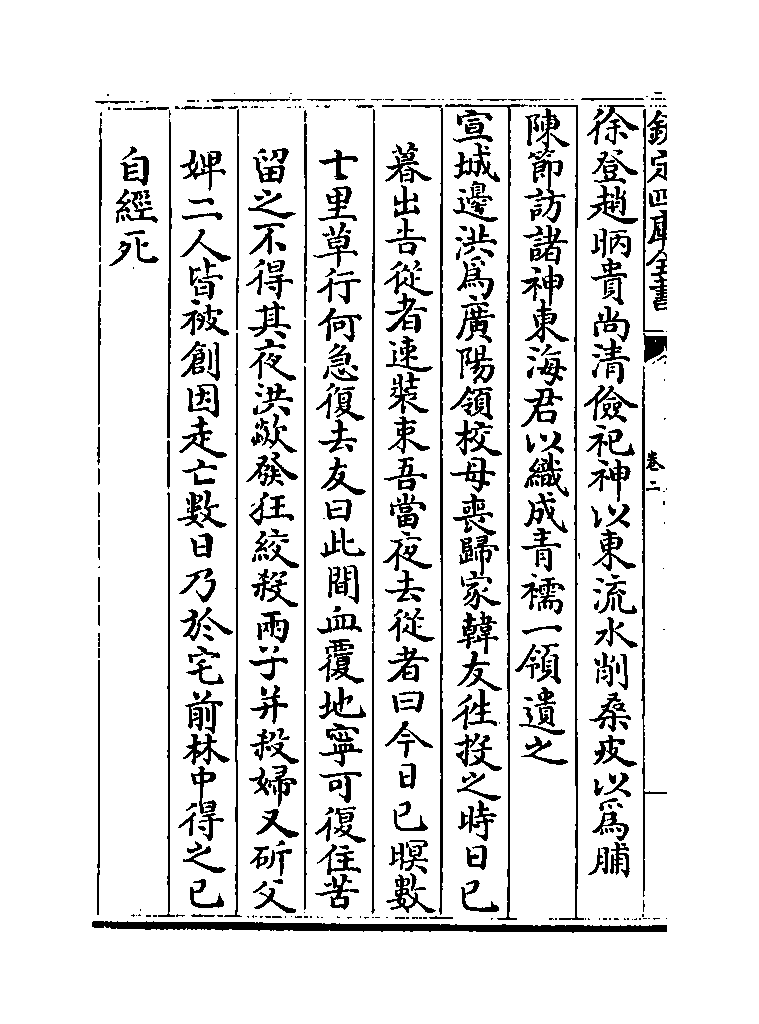 欽定四庫全書
卷二
徐登趙昞貴尚清儉祀神以東流水削桑皮以為脯
陳節訪諸神東海君以織成青襦一領遺之
宣城邊洪為廣陽領校母喪歸家韓友往投之時日已
暮出告從者速裝束吾當夜去從者曰今日已暝數
十里草行何急復去友曰此間血覆地寧可復住苦
留之不得其夜洪歘發狂絞殺兩子并殺婦又斫父
婢二人皆被創因走亡數日乃於宅前林中得之已
自經死